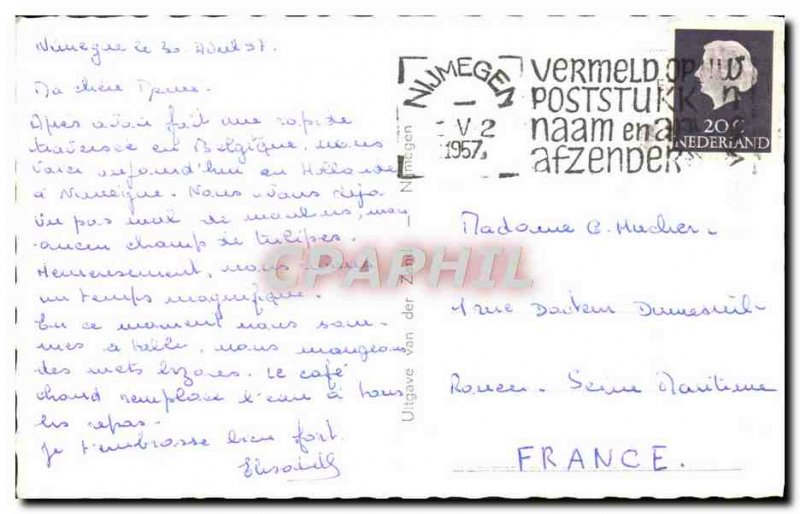 Nimègue le 30 Avril 57.
Ma chère Mame.
Après avoir fait une rapide
traversée en Belgique, nous
voici aujourd'hui en Hollande
à Nimègue. Nous avons déjà
vu pas mal de moulins, mais
aucun champ de tulipes.
Heureusement, nous avons
un temps magnifique.
En ce moment nous som-
mes à table, nous mangeons
des mets bizares. Le café
chaud remplace l'eau à tous
les repas.
Je t'embrasse bien fort.
Elisabeth
Uitgave Van der Zand - Nijmegen
NIJMEGEN
V 2
1957
VERMELD OP UW
POSTSTUKK
naam en a
afzender
20 c
NEDERLAND
Madame C. Hucher.
1 rue Docteur Dumesnil.
Rouen. Seine Maritime
FRANCE.
CPAPHIL